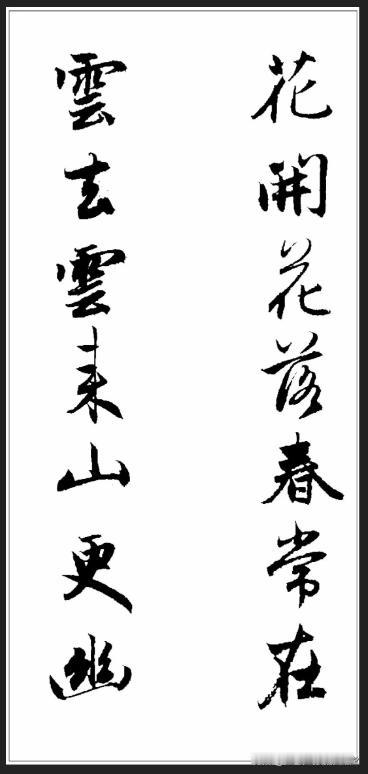 花開花落春常在
雲去雲來山更幽